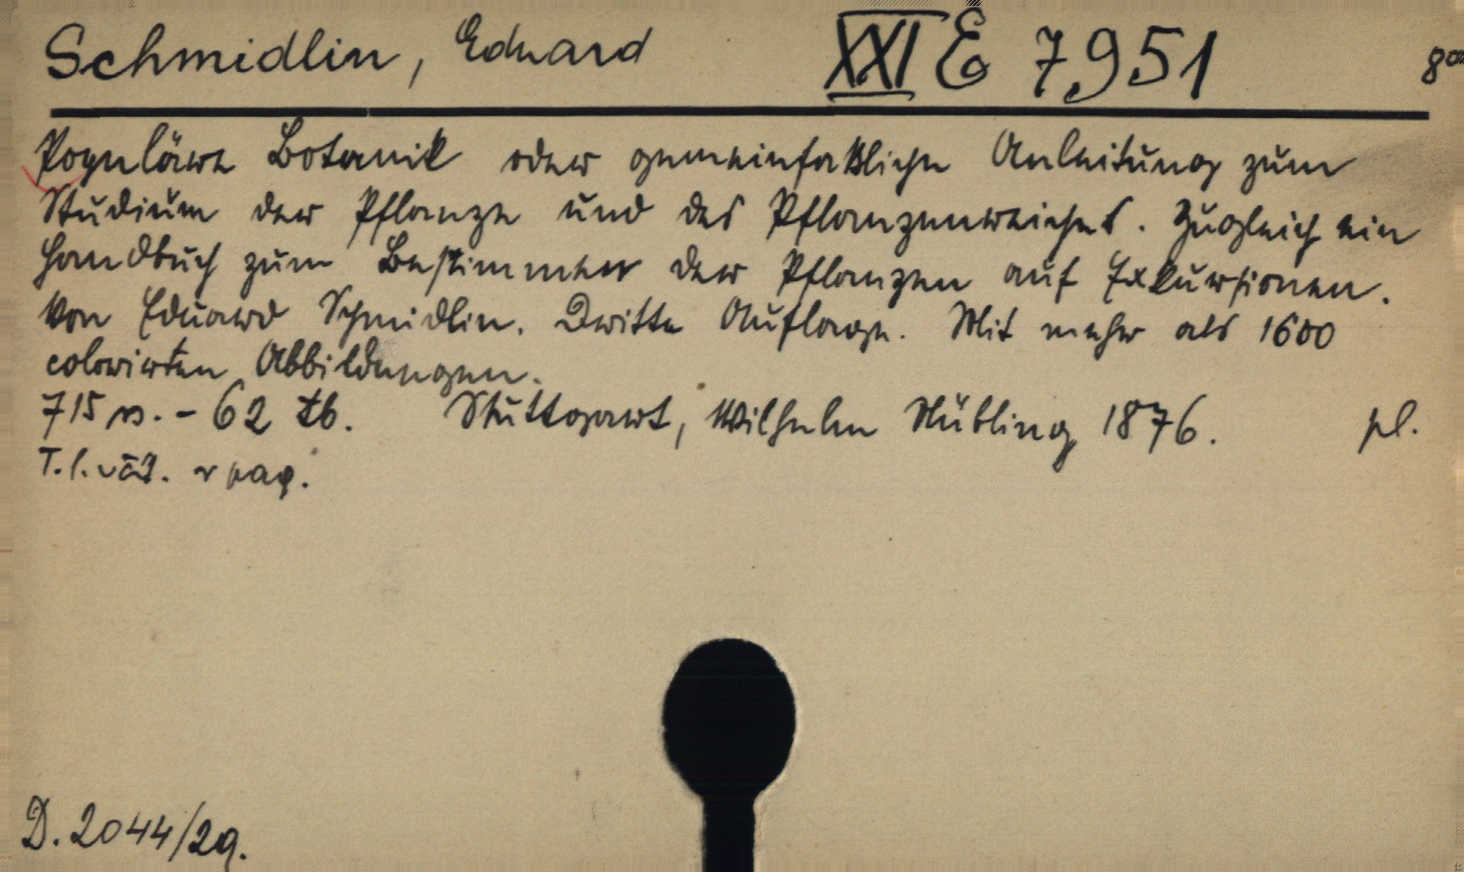 Schmidlin, Eduard XXI E 7951 8°
Populäre Botanik oder gemeinfaßliche Anleitung zum
Studium der Pflanze und des Pflanzenreiches. Zugleich ein
Handbuch zum Bestimmen der Pflanzen auf Exkursionen.
Von Eduard Schmidlin. Dritte Auflage. Mit mehr als 1600
colorirten Abbildungen.
715 s. - 62 tb. Stuttgart, Wilhelm Nübling 1876. pl.
T. l. váz. v pag.
D. 2044/29.